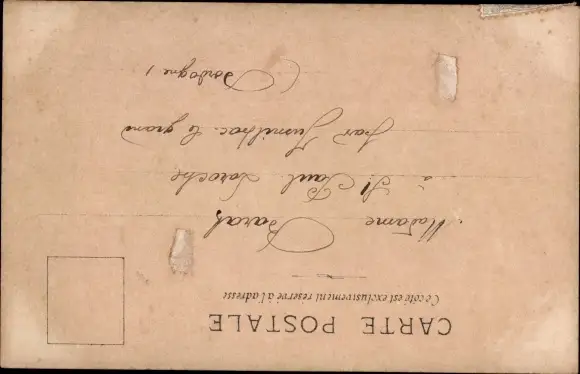 CARTE POSTALE
Ce côté est exclusivement réservé à l'adresse
Madame
à St Paul Laroche
par Jumilhac le grand
(Dordogne)